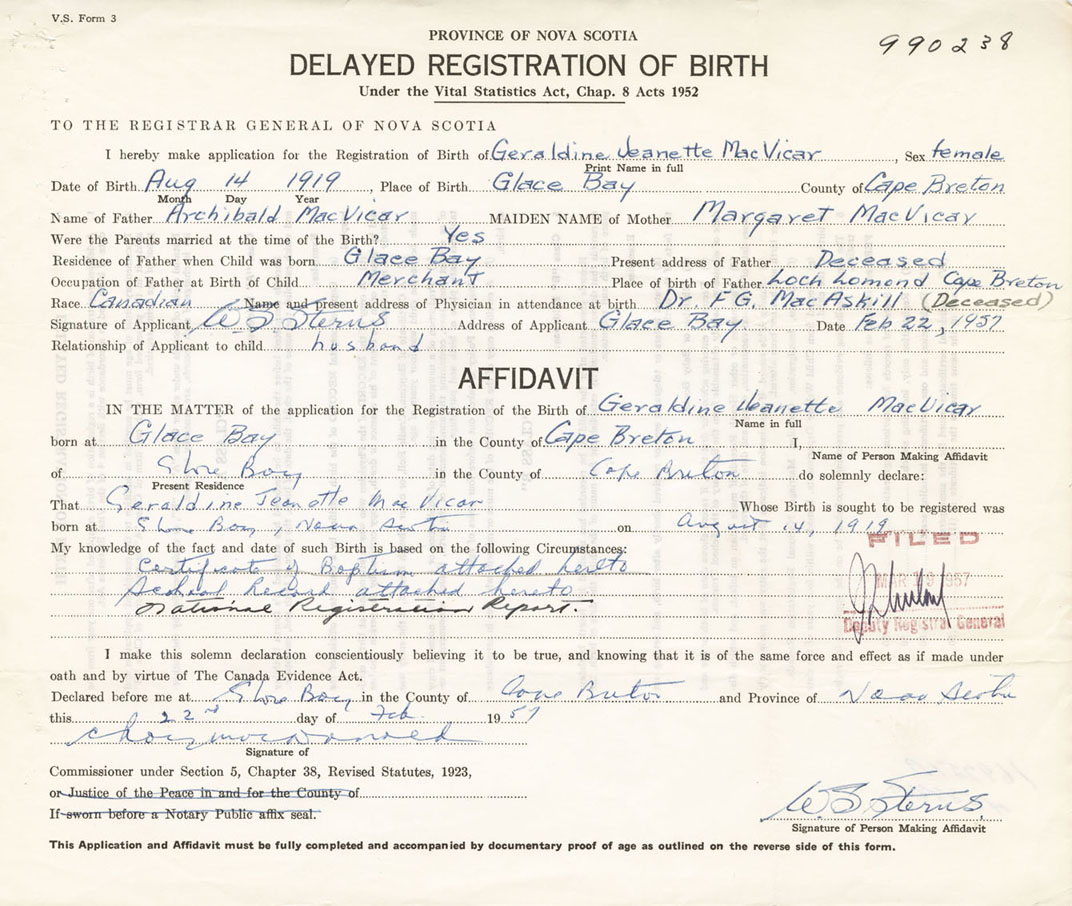 V.S. Form 3
990238
PROVINCE OF NOVA SCOTIA
DELAYED REGISTRATION OF BIRTH
Under the Vital Statistics Act, Chap. 8 Acts 1952
TO THE REGISTRAR GENERAL OF NOVA SCOTIA
I hereby make application for the Registration of Birth of Geraldine Jeanette MacVicar, Sex female
Print Name in full
Date of Birth Aug 14 1919, Place of Birth Glace Bay County of Cape Breton
Month Day Year
Name of Father Archibald MacVicar MAIDEN NAME of Mother Margaret MacVicar
Were the Parents married at the time of the Birth? Yes
Residence of Father when Child was born Glace Bay Present address of Father Deceased
Occupation of Father at Birth of Child Merchant Place of birth of Father Loch Lomond Cape Breton
Race Canadian Name and present address of Physician in attendance at birth Dr. F.G. MacAskill (Deceased)
Signature of Applicant W S Sterns Address of Applicant Glace Bay Date Feb 22, 1957
Relationship of Applicant to child husband
AFFIDAVIT
IN THE MATTER of the application for the Registration of the Birth of Geraldine Jeanette MacVicar
Name in full
born at Glace Bay in the County of Cape Breton I,
Name of Person Making Affidavit
of Glace Bay in the County of Cape Breton do solemnly declare:
Present Residence
That Geraldine Jeanette MacVicar Whose Birth is sought to be registered was
born at Glace Bay, Nova Scotia on August 14, 1919
My knowledge of the fact and date of such Birth is based on the following Circumstances:
FILED
Certificate of Baptism attached hereto
School Record attached hereto
MAR 1957
National Registration Report.
Deputy Registrar General
I make this solemn declaration conscientiously believing it to be true, and knowing that it is of the same force and effect as if made under
oath and by virtue of The Canada Evidence Act.
Declared before me at Glace Bay in the County of Cape Breton and Province of Nova Scotia
this 22nd day of Feb. 1957
Signature of
Commissioner under Section 5, Chapter 38, Revised Statutes, 1923,
or Justice of the Peace in and for the County of
If sworn before a Notary Public affix seal.
W S Sterns
Signature of Person Making Affidavit
This Application and Affidavit must be fully completed and accompanied by documentary proof of age as outlined on the reverse side of this form.